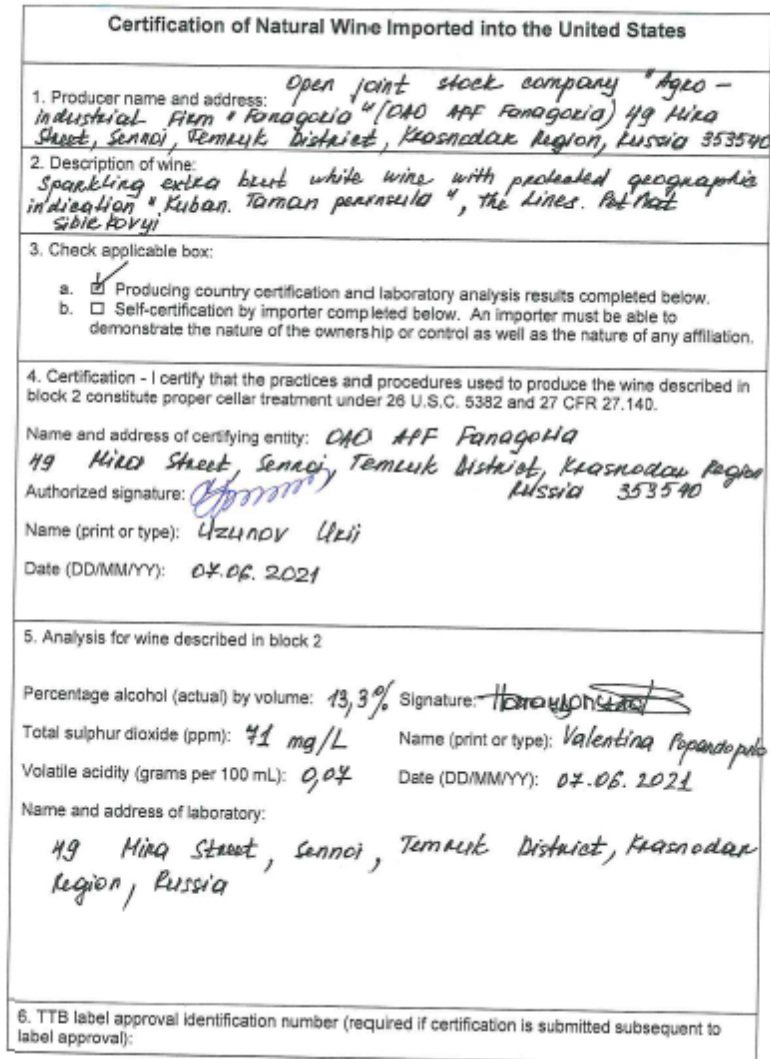 Certification of Natural Wine Imported into the United States
1. Producer name and address: Open joint stock company "Agro-
industrial Firm "Fanagoria" (OAO APF Fanagoria) 49 Mira
Street, Sennoi, Temruk District, Krasnodar Region, Russia 353540
2. Description of wine:
Sparkling extra brut white wine with protected geographic
indication "Kuban. Taman peninsula", the Lines. Pet Nat
Sibirkovyi
3. Check applicable box:
a. ☑ Producing country certification and laboratory analysis results completed below.
b. ☐ Self-certification by importer completed below. An importer must be able to
demonstrate the nature of the ownership or control as well as the nature of any affiliation.
4. Certification - I certify that the practices and procedures used to produce the wine described in
block 2 constitute proper cellar treatment under 26 U.S.C. 5382 and 27 CFR 27.140.
Name and address of certifying entity: OAO APF Fanagoria
49 Mira Street, Sennoi, Temruk District, Krasnodar Region
Russia 353540
Authorized signature:
Name (print or type): Uzunov Urii
Date (DD/MM/YY): 07.06.2021
5. Analysis for wine described in block 2
Percentage alcohol (actual) by volume: 13,3% Signature:
Total sulphur dioxide (ppm): 71 mg/L Name (print or type): Valentina Popandopulo
Volatile acidity (grams per 100 mL): 0,07 Date (DD/MM/YY): 07.06.2021
Name and address of laboratory:
49 Mira Street, Sennoi, Temruk District, Krasnodar
Region, Russia
6. TTB label approval identification number (required if certification is submitted subsequent to
label approval):